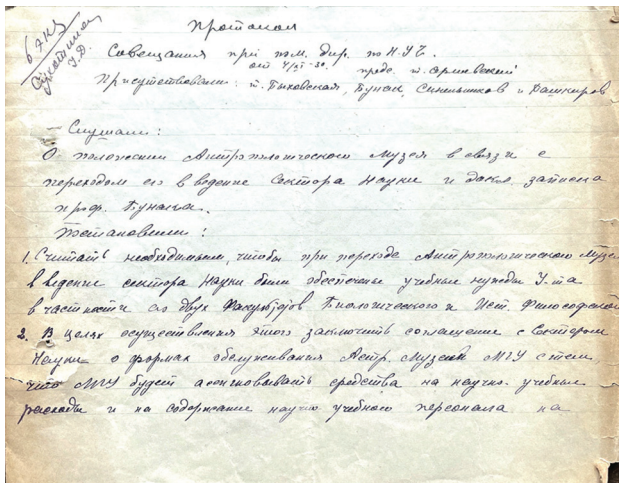 6 экз
Протокол
Совещания при пом. дир. по НУЧ.
от 4/XI-30.
Присутствовали: т. Быховская, Бунак, Синельников и Башкиров
Слушали:
О положении Антропологического Музея в связи с
переходом его в ведение Сектора Науки и докл. записка
проф. Бунака.
Постановили:
1. Считать необходимым, чтобы при переходе Антропологического Музея
в ведение сектора Науки были обеспечены учебные нужды У-та
в частности его двух факультетов Биологического и Ист. Философского
2. В целях осуществления этого заключить соглашение с Сектором
Науки о формах обслуживания Антр. Музеем МГУ с тем
что МГУ будет ассигновывать средства на научно-учебные
расходы и на содержание научно учебного персонала на